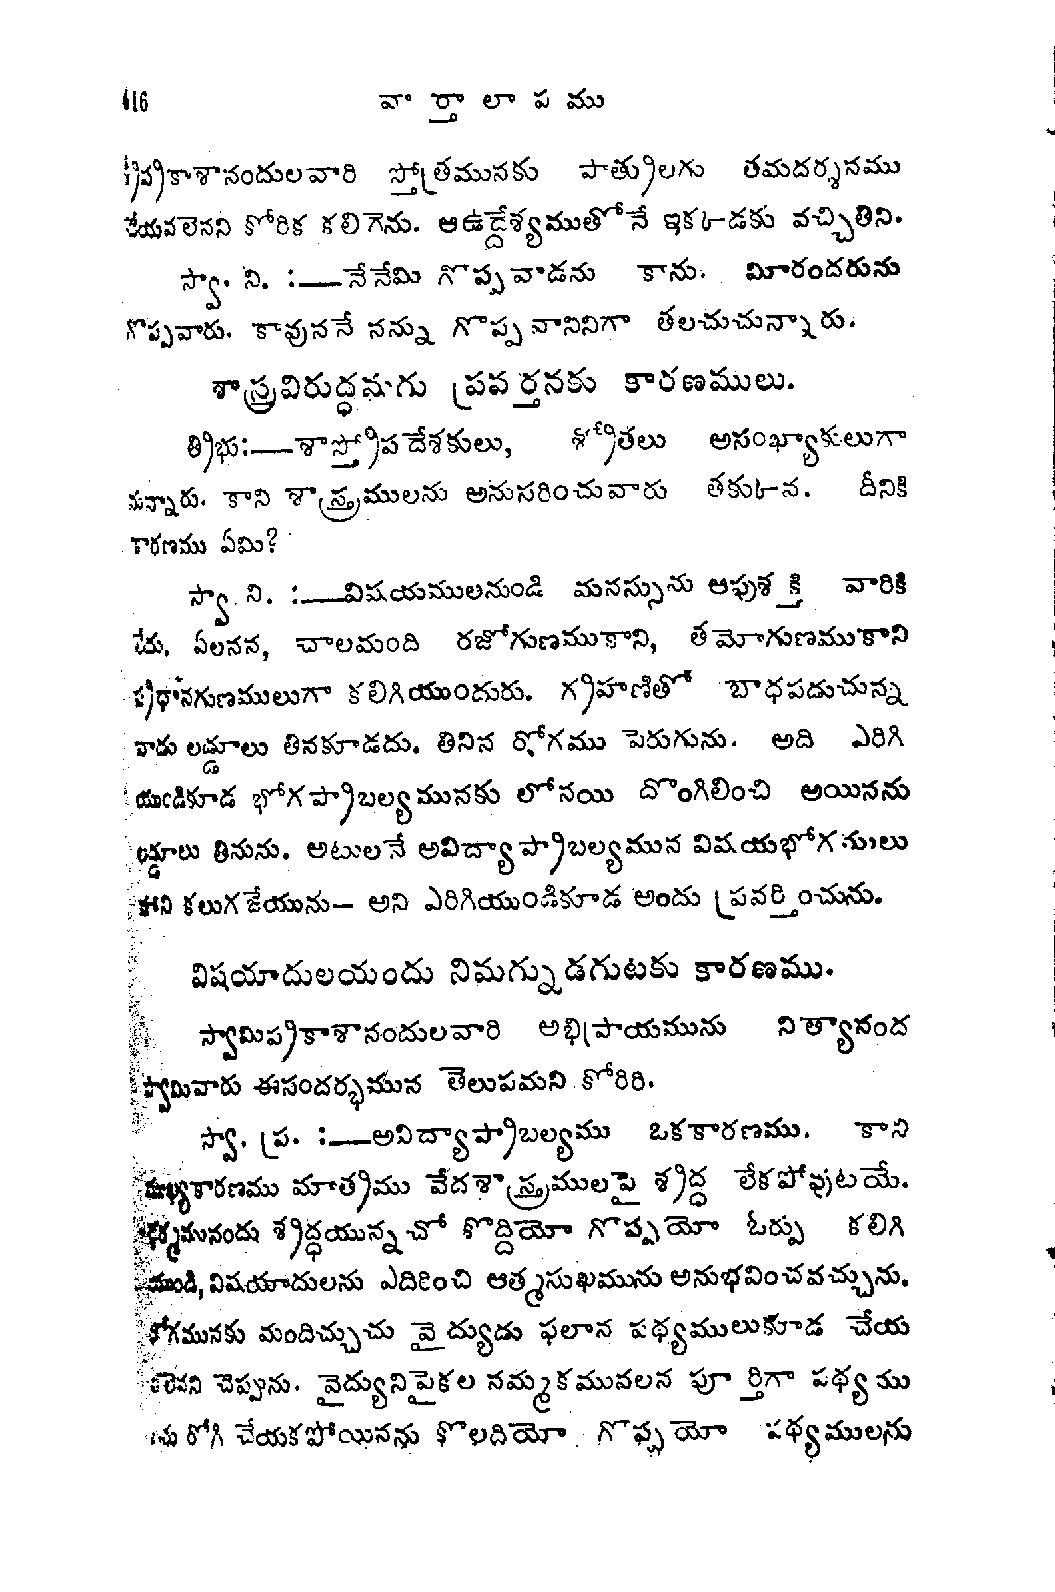 116 వార్తాలాపము
శ్రీప్రకాశానందులవారి స్తోత్రమునకు పాత్రులగు తమదర్శనము
చేయవలెనని కోరిక కలిగెను. ఆఉద్దేశ్యముతోనే ఇక్కడకు వచ్చితిని.
స్వా. ని. :—నేనేమి గొప్పవాడను కాను. మీరందరును
గొప్పవారు. కావుననే నన్ను గొప్పవానినిగా తలచుచున్నారు.
శాస్త్రవిరుద్ధమగు ప్రవర్తనకు కారణములు.
త్రిభు:—శాస్త్రోపదేశకులు, శ్రోతలు అసంఖ్యాకులుగా
నున్నారు. కాని శాస్త్రములను అనుసరించువారు తక్కువ. దీనికి
కారణము ఏమి?
స్వా. ని. :—విషయములనుండి మనస్సును ఆపుశక్తి వారికి
లేదు. ఏలనన, చాలమంది రజోగుణముకాని, తమోగుణముకాని
ప్రధానగుణములుగా కలిగియుందురు. గ్రహణితో బాధపడుచున్న
వాడు లడ్డూలు తినకూడదు. తినిన రోగము పెరుగును. అది ఎరిగి
యుండికూడ భోగప్రాబల్యమునకు లోనయి దొంగిలించి అయినను
లడ్డూలు తినును. అటులనే అవిద్యాప్రాబల్యమున విషయభోగములు
హాని కలుగజేయును— అని ఎరిగియుండికూడ అందు ప్రవర్తించును.
విషయాదులయందు నిమగ్నుడగుటకు కారణము.
స్వామిప్రకాశానందులవారి అభిప్రాయమును నిత్యానంద
స్వామివారు ఈసందర్భమున తెలుపమని కోరిరి.
స్వా. ప్ర. :—అవిద్యాప్రాబల్యము ఒకకారణము. కాని
ముఖ్యకారణము మాత్రము వేదశాస్త్రములపై శ్రద్ధ లేకపోవుటయే.
ధర్మమునందు శ్రద్ధయున్నచో కొద్దియో గొప్పయో ఓర్పు కలిగి
యుండి, విషయాదులను ఎదిరించి ఆత్మసుఖమును అనుభవించవచ్చును.
రోగమునకు మందిచ్చుచు వైద్యుడు ఫలాన పథ్యములుకూడ చేయ
వలెనని చెప్పును. వైద్యునిపైకల నమ్మకమువలన పూర్తిగా పథ్యము
ను రోగి చేయకపోయినను కొలదియో గొప్పయో పథ్యములను